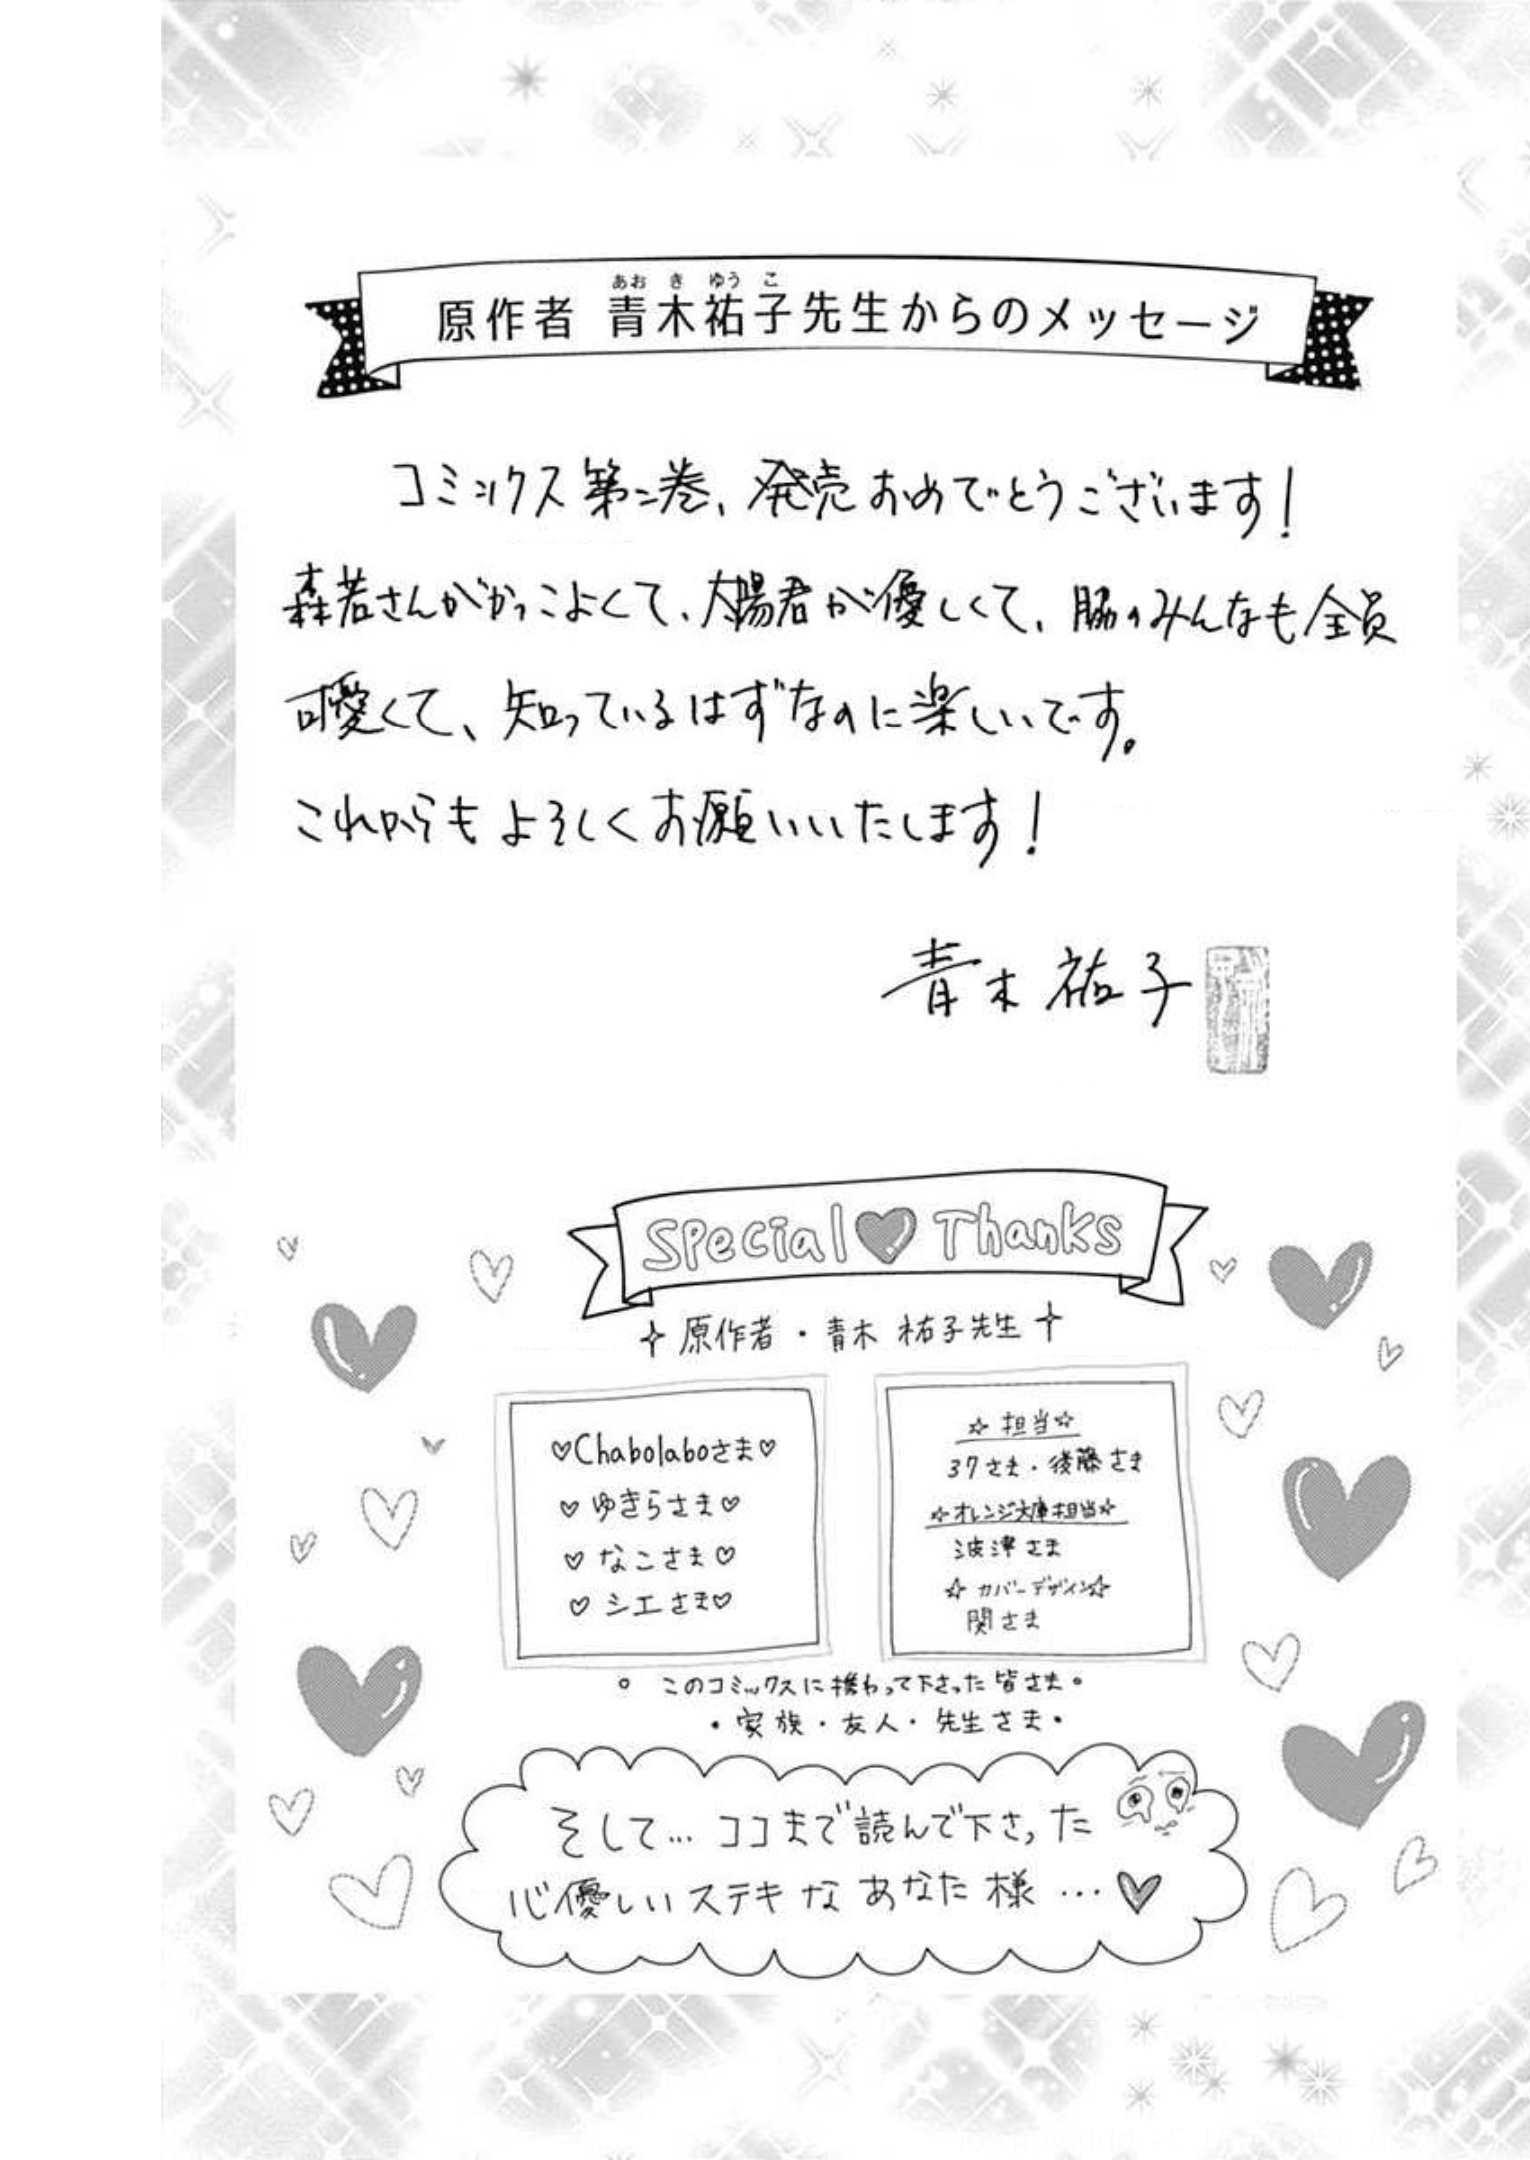 原作者 青木祐子先生からのメッセージ
あお き ゆう こ
コミックス第二巻、発売おめでとうございます!
森若さんがかっこよくて、太陽君が優しくて、脇のみんなも全員
可愛くて、知っているはずなのに楽しいです。
これからもよろしくお願いいたします!
青木祐子
Special♥Thanks
✧原作者・青木祐子先生✧
♡Chabolaboさま♡
♡ゆきらさま♡
♡なこさま♡
♡シエさま♡
☆担当☆
37さま・後藤さま
☆オレンジ文庫担当☆
波津さま
☆カバーデザイン☆
関さま
。このコミックスに携わって下さった皆さま。
・家族・友人・先生さま・
そして…ココまで読んで下さった
心優しいステキなあなた様…♥